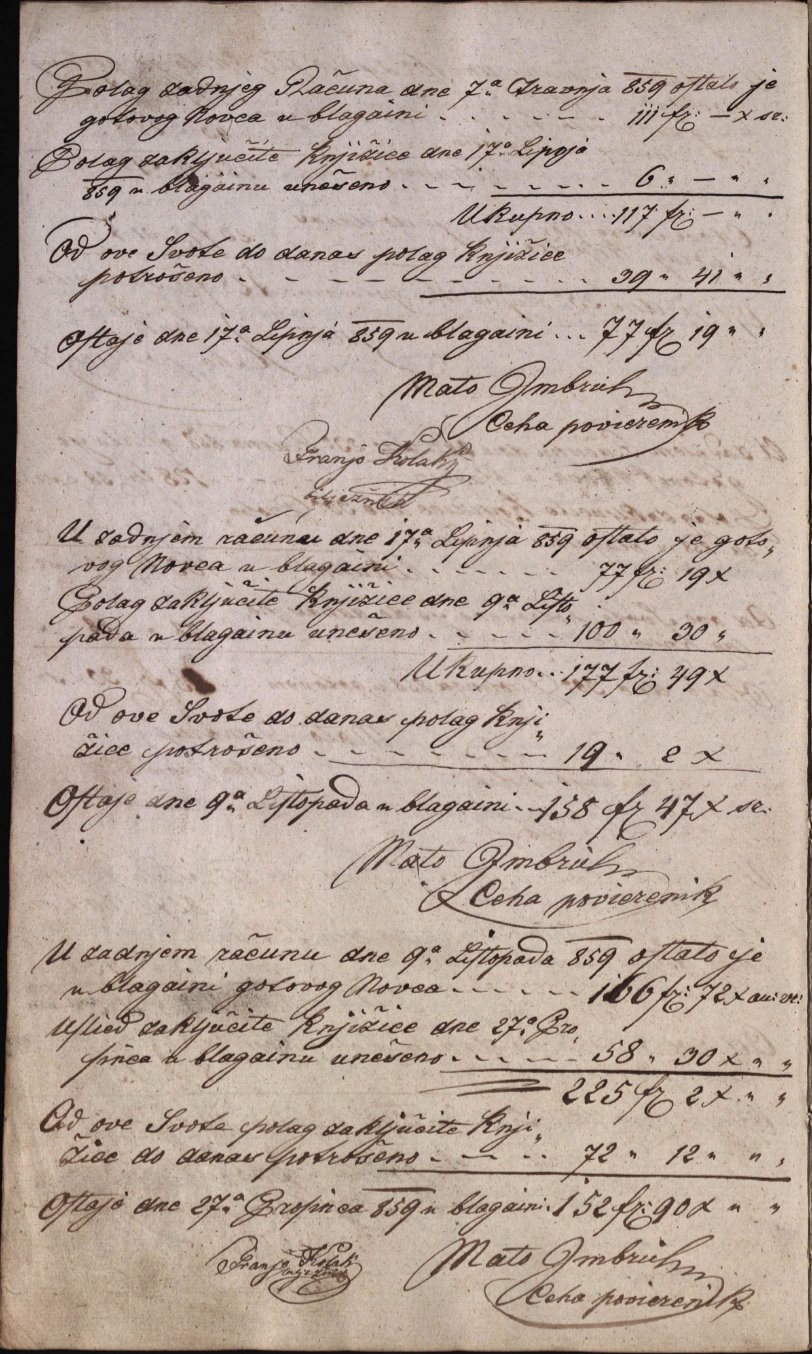 Polag zadnjeg Računa dne 7ª Travnja 859 oſtalo je
gotovog Novca u blagaini . . . . . . 111 fr: — x sr:
Polag zaključite Knjižice dne 17ª Lipnja
859 u blagainu unešeno . . . . . . 6 „ — „ „
Ukupno .... 117 fr: — „ „
Od ove Svote do danas polag Knjižice
potrošeno . . . . . . 39 „ 41 „ „
Oſtaje dne 17ª Lipnja 859 u blagaini ... 77 fr 19 „ „
Mato Imbrih
Ceha povierenik
Franjo Kolak
bilježnik
U zadnjem računu dne 17ª Lipnja 859 oſtalo je goto„
vog Novca u blagaini . . . . . . 77 fr: 19 x
Polag zaključite Knjižice dne 9ª Liſto„
pada u blagainu unešeno . . . . . 100 „ 30 „
Ukupno .. 177 fr: 49 x
Od ove Svote do danas polag Knji„
žice potrošeno . . . . . . 19 „ 2 x
Oſtaje dne 9ª Liſtopada u blagaini .. 158 fr 47 x sr:
Mato Imbrih
Ceha povierenik
U zadnjem računu dne 9ª Liſtopada 859 oſtalo je
u blagaini gotovog Novca . . . . . 166 fr: 72 x au: vr:
Uslied zaključite Knjižice dne 27ª Pro„
sinca u blagainu unešeno . . . . . 58 „ 30 x „ „
225 fr 2 x „ „
Od ove Svote polag zaključite Knji„
žice do danas potrošeno . . . . 72 „ 12 „ „ „
Oſtaje dne 27ª Prosinca 859 u blagaini . 152 fr: 90 x „ „
Franjo Kolak
bilježnik
Mato Imbrih
Ceha povierenik